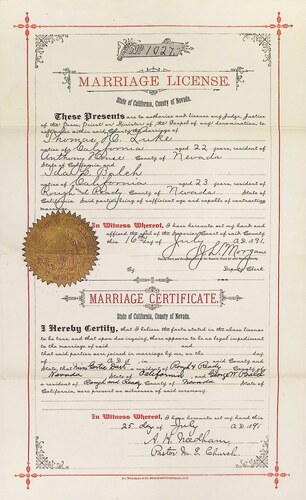 No 1027
MARRIAGE LICENSE.
State of California, County of Nevada.
These Presents are to authorize and license any Judge, Justice
of the Peace, Priest or Minister of the Gospel of any denomination, to
solemnize within said County the marriage of
Thomas H. Luke
native of California aged 22 years, resident of
Anthony House County of Nevada
State of California and
Ida E. Balch
native of California aged 23 years, resident of
Rough & Ready County of Nevada State of
California. Said parties being of sufficient age and capable of contracting
marriage.
In Witness Whereof, I have hereunto set my hand and
affixed the Seal of the Superior Court of said County
this 16 day of July A.D. 1891.
J. L. Morgan
By Deputy Clerk
MARRIAGE CERTIFICATE.
State of California, County of Nevada.
I Hereby Certify, that I believe the facts stated in the above license
to be true, and that upon due inquiry, there appears to be no legal impediment
to the marriage of said and
that said parties were joined in marriage by me, on the day
of A.D. 1 in said County and
State, that Miss a resident of Rough & Ready
Nevada State of California and George W.
a resident of Rough and Ready County of Nevada State of
California, were present as witnesses of said ceremony.
In Witness Whereof, I have hereunto set my hand this
25 day of July A.D. 1891
A. H. Needham,
Pastor M. E. Church.